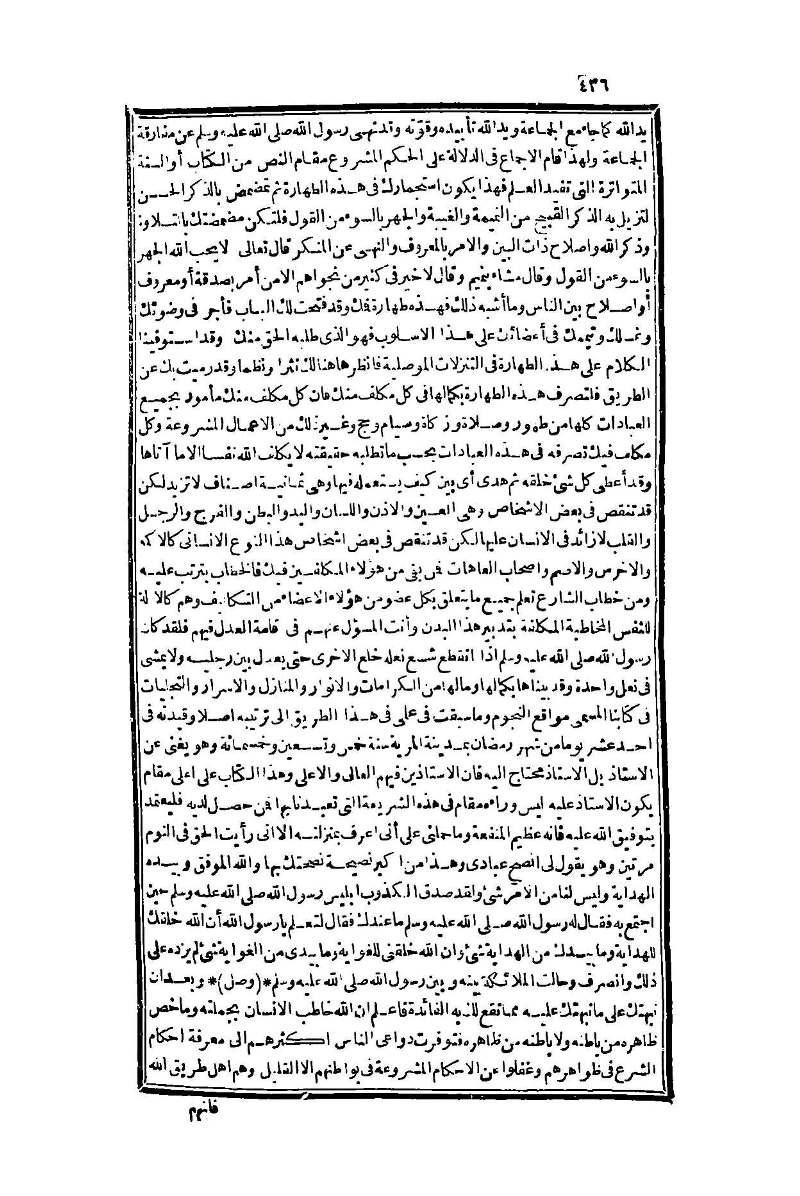 ٤٣٦
يد الله كما جاء مع الجماعة ويد الله تأييده وقوته وقد نهى رسول الله صلى الله عليه وسلم عن مفارقة
الجماعة ولهذا قام الاجماع فى الدلالة على الحكم المشروع مقام النص من الكتاب أو السنة
المتواترة التى تفيد العلم فهذا يكون استجمارك فى هذه الطهارة ثم تمضمض بالذكر الحسن
لتزيل به الذكر القبيح من النميمة والغيبة والجهر بالسوء من القول فلتكن مضمضتك بالتلاوة
وذكر الله واصلاح ذات البين والامر بالمعروف والنهى عن المنكر قال تعالى لا يحب الله الجهر
بالسوء من القول وقال مشاء بنميم وقال لا خير فى كثير من نجواهم الا من أمر بصدقة أو معروف
أو اصلاح بين الناس وما أشبه ذلك فهذه طهارة فك وقد فتحت لك الباب فأجر فى وضوئك
وغسلك وتيممك فى أعضائك على هذا الاسلوب فهو الذى طلبه الحق منك وقد استوفينا
الكلام على هذه الطهارة فى التنزلات الموصلية فانظر هاهنالك نثرا ونظما وقد رميت بك عن
الطريق فلتصرف هذه الطهارة بكمالها فى كل مكلف منك فان كل مكلف منك مأمور بجميع
العبادات كلها من طهور وصلاة وزكاة وصيام وحج وغير ذلك من الاعمال المشروعة وكل
مكلف فيك تصرفه فى هذه العبادات بحسب ما تطلبه حقيقته لا يكلف الله نفسا الا ما آتاها
وقد أعطى كل شئ خلقه ثم هدى أى بين كيف يستعمله فيها وهى ثمانية اصناف لا تزيد لكن
قد تنقص فى بعض الاشخاص وهى العين والاذن واللسان واليد والبطن والفرج والرجل
والقلب لا زائد فى الانسان عليها لكن قد تنقص فى بعض اشخاص هذا النوع الانسانى كالاكمه
والاخرس والاصم واصحاب العاهات فمن بقى من هؤلاء المكلفين فيك فالخطاب يترتب عليه
ومن خطاب الشارع تعلم جميع ما يتعلق بكل عضو من هؤلاء الاعضاء من التكاليف وهم كالآلة
للنفس المخاطبة المكلفة بتدبير هذا البدن وأنت المسؤل عنهم فى اقامة العدل فيهم فلقد كان
رسول الله صلى الله عليه وسلم اذا انقطع شسع نعله خلع الاخرى حتى يعدل بين رجليه ولا يمشى
فى نعل واحدة وقد بيناها بكمالها وما لها من الكرامات والانوار والمنازل والاسرار والتجليات
فى كتابنا المسمى مواقع النجوم وما سبقت فى علمى فى هذا الطريق الى ترتيبه اصلا وقيدته فى
احد عشر يوما من شهر رمضان بمدينة المرية سنة خمس وتسعين وخمسمائة وهو يغنى عن
الاستاذ بل الاستاذ محتاج اليه فان الاستاذين فيهم العالى والاعلى وهذا الكتاب على اعلى مقام
يكون الاستاذ عليه ليس وراءه مقام فى هذه الشريعة التى تعبدنا بها فمن حصل لديه فليعتمد
بتوفيق الله عليه فانه عظيم المنفعة وما حملنى على أنى اعرف بمنزلته الا انى رأيت الحق فى النوم
مرتين وهو يقول لى انصح عبادى وهذا من اكبر نصيحة نصحتك بها والله الموفق وبيده
الهداية وليس لنا من الامر شئ ولقد صدق الكذوب ابليس رسول الله صلى الله عليه وسلم حين
اجتمع به فقال له رسول الله صلى الله عليه وسلم ما عندك فقال لتعلم يا رسول الله أن الله خلقك
للهداية وما بيدك من الهداية شئ وان الله خلقنى للغواية وما بيدى من الغواية شئ لم يزده على
ذلك وانصرف وحالت الملائكة بينه وبين رسول الله صلى الله عليه وسلم *(وصل)* وبعد ان
نبهتك على ما نبهتك عليه مما تقع لك به الفائدة فاعلم ان الله خاطب الانسان بجملته وما خص
ظاهره من باطنه ولا باطنه من ظاهره فتوفرت دواعى الناس اكثرهم الى معرفة احكام
الشرع فى ظواهرهم وغفلوا عن الاحكام المشروعة فى بواطنهم الا القليل وهم اهل طريق الله
فانهم